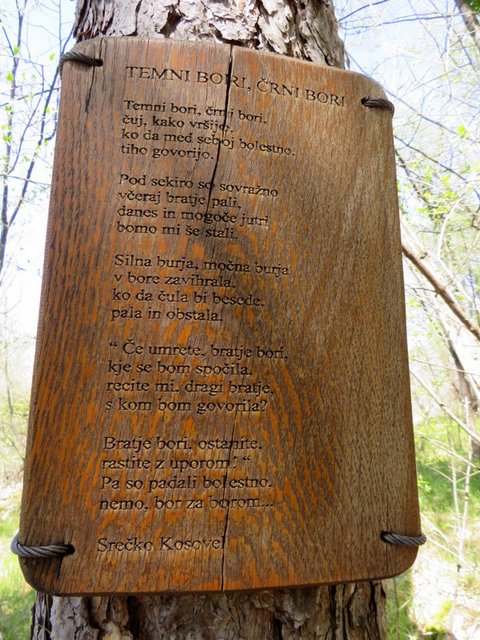 TEMNI BORI, ČRNI BORI
Temni bori, črni bori,
čuj, kako vršijo,
ko da med seboj bolestno,
tiho govorijo.
Pod sekiro so sovražno
včeraj bratje pali,
danes in mogoče jutri
bomo mi še stali.
Silna burja, močna burja
v bore zavihrala,
ko da čula bi besede,
pala in obstala.
“ Če umrete, bratje bori,
kje se bom spočila,
recite mi, dragi bratje,
s kom bom govorila?
Bratje bori, ostanite,
rastite z uporom! “
Pa so padali bolestno,
nemo, bor za borom...
Srečko Kosovel